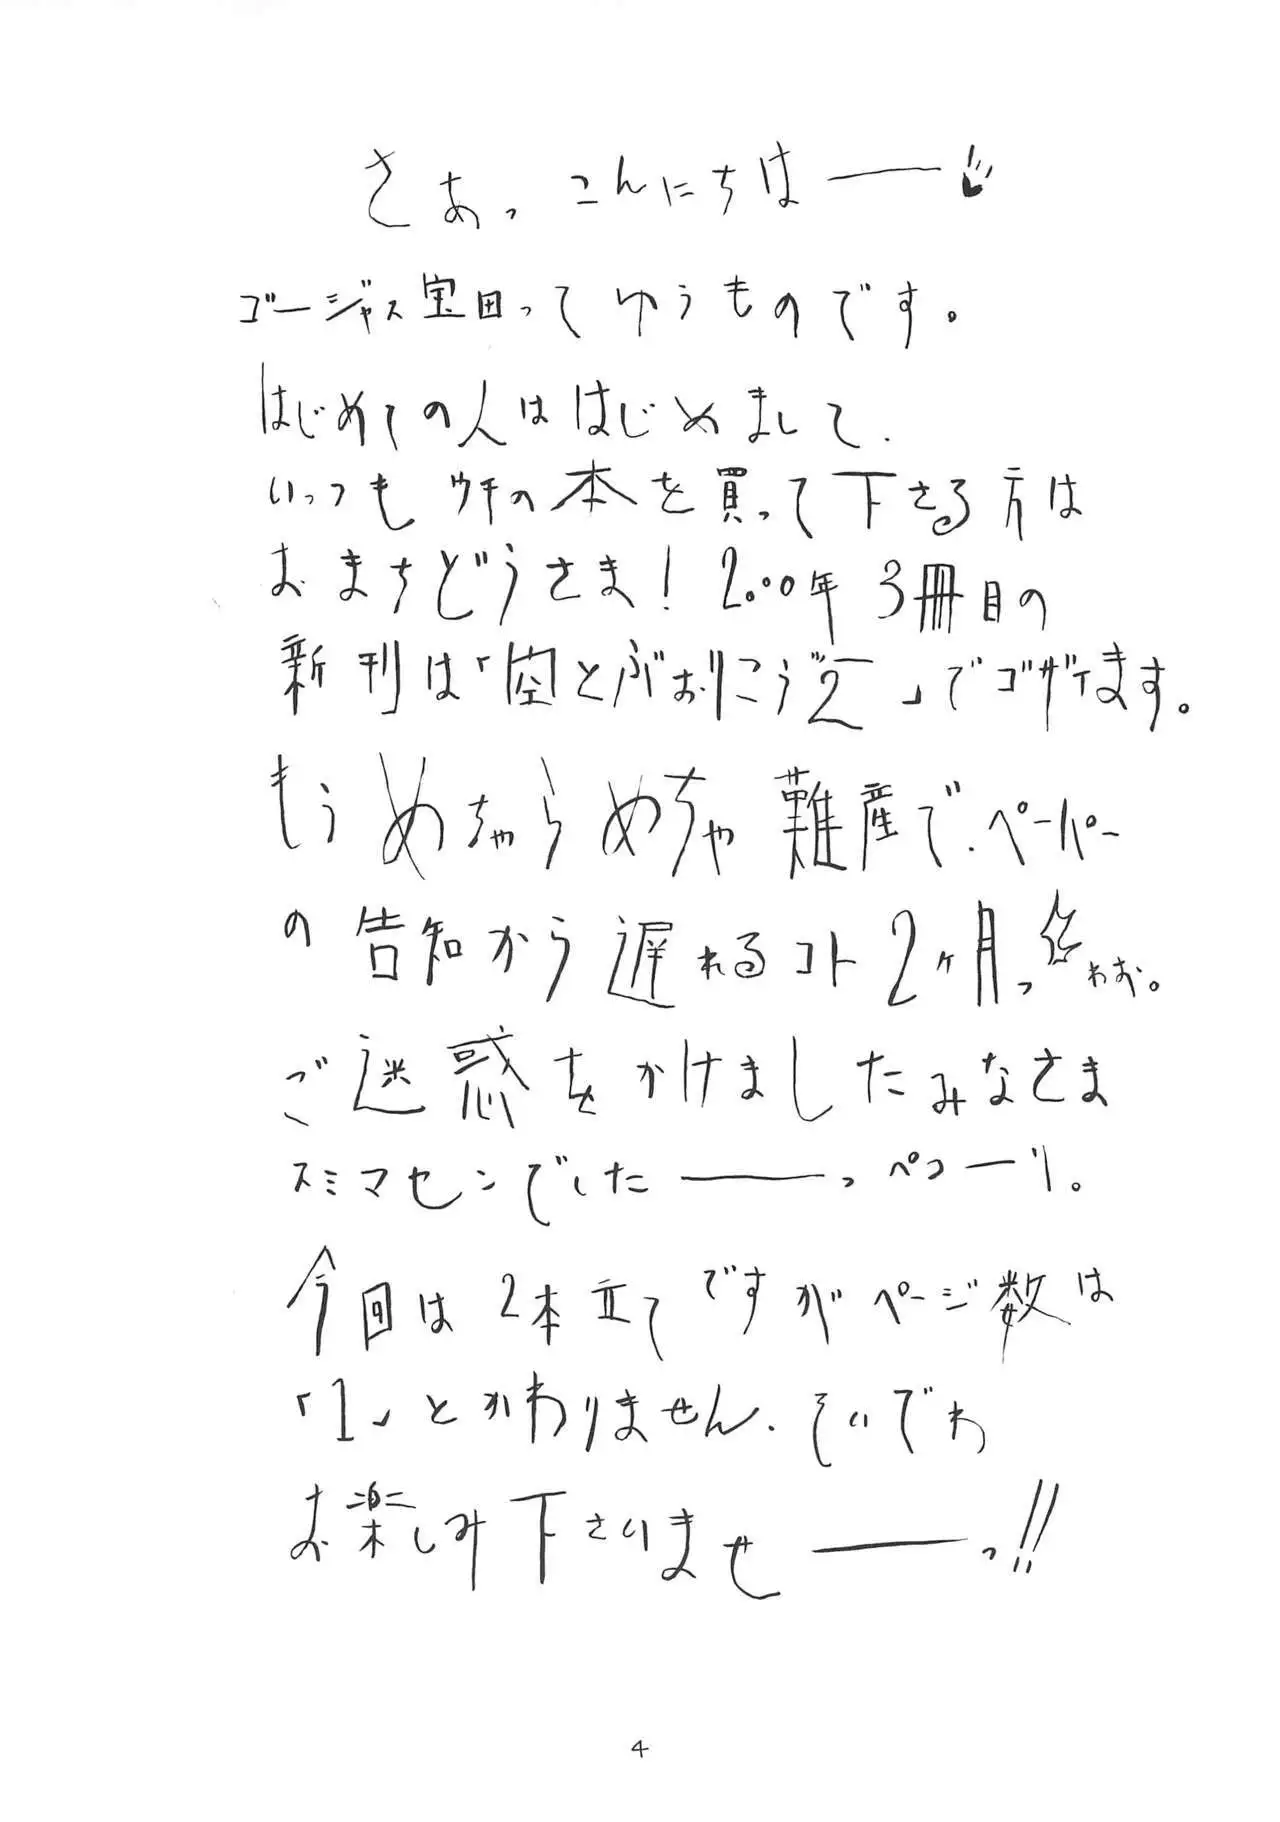 さぁっ こんにちはー
ゴージャス宝田ってゆうものです。
はじめての人ははじめまして.
いっつもウチの本を買って下さる方は
おまちどうさま！2000年3冊目の
新刊は「空とぶおりこうズ2」でゴザイます。
もうめちゃらめちゃ難産で.ペーパー
の告知から遅れるコト2ヶ月っ わお。
ご迷惑をかけましたみなさま
スミマセンでしたーっ ペコーリ。
今回は2本立てですがページ数は
「1」とかわりません.そいでわ
お楽しみ下さいませーっ!!
4